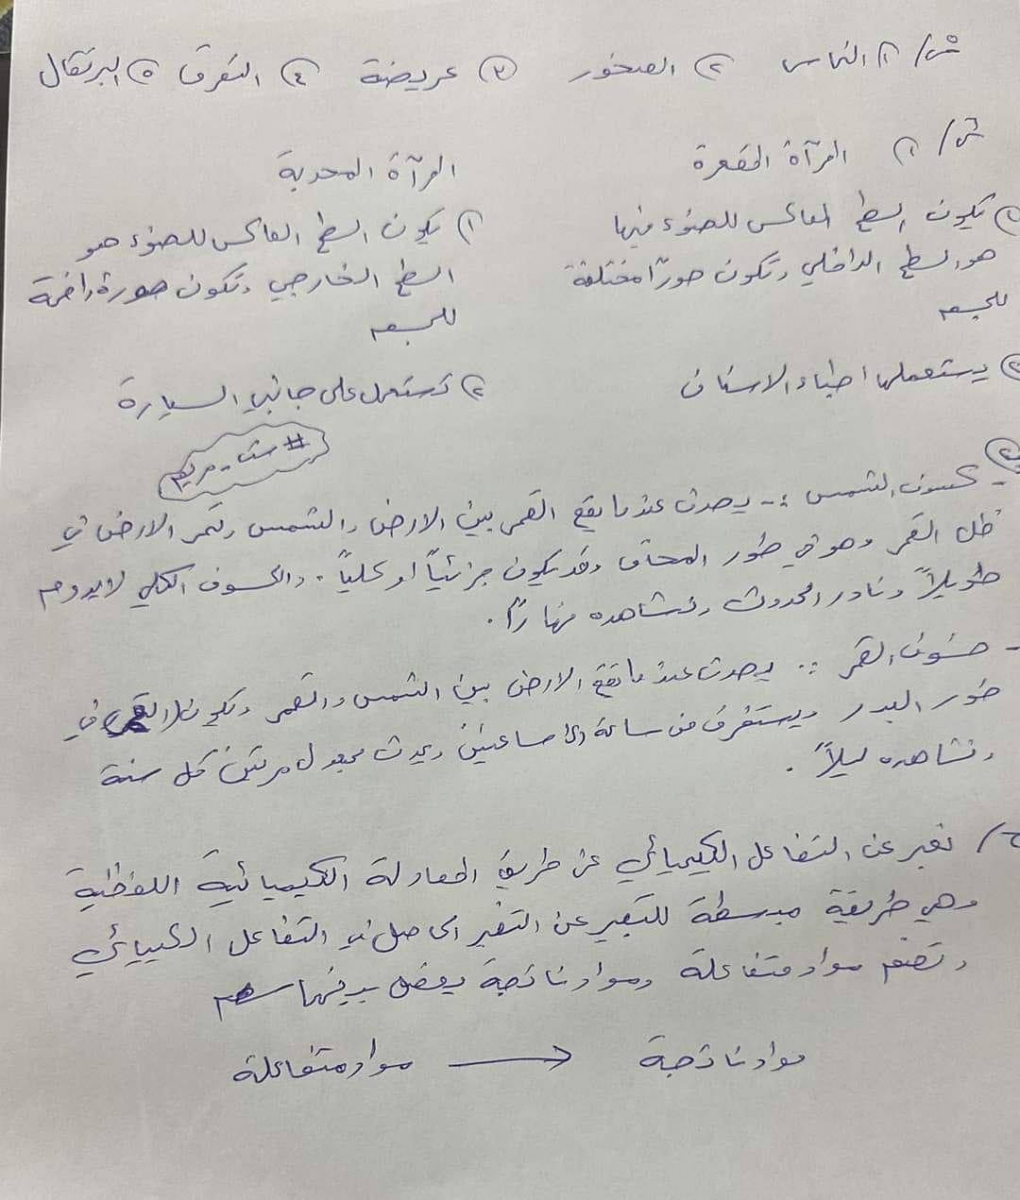 س/ ١) النحاس ٢) الصخور ٣) عريضة ٤) التعرق ٥) البرتقال
س/ ١) المرآة المقعرة المرآة المحدبة
١) يكون السطح العاكس للضوء فيها ١) يكون السطح العاكس للضوء هو
هو السطح الداخلي وتكون صورًا مختلفة السطح الخارجي وتكون صورة واضحة
للجسم للجسم
٢) يستعملها اطباء الاسنان ٢) تستعمل على جانبي السيارة
# ست - مريم
٢) - كسوف الشمس :- يحدث عندما يقع القمر بين الارض والشمس وتمر الارض في
ظل القمر وهو في طور المحاق وقد يكون جزئياً او كلياً . والكسوف الكلي لا يدوم
طويلاً ونادر الحدوث ونشاهده نهارًا .
- خسوف القمر :. يحدث عندما تقع الارض بين الشمس والقمر ويكون القمر في
طور البدر ويستغرق من ساعة الى ساعتين ويحدث بمعدل مرتين كل سنة
ونشاهده ليلاً .
ج/ نعبر عن التفاعل الكيميائي عن طريق المعادلة الكيميائية اللفظية
وهي طريقة مبسطة للتعبير عن التغير الحاصل في التفاعل الكيميائي
وتضم مواد متفاعلة ومواد ناتجة يفصل بينهما سهم
مواد ناتجة ← مواد متفاعلة